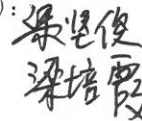 ):
梁坚俊
梁培霞